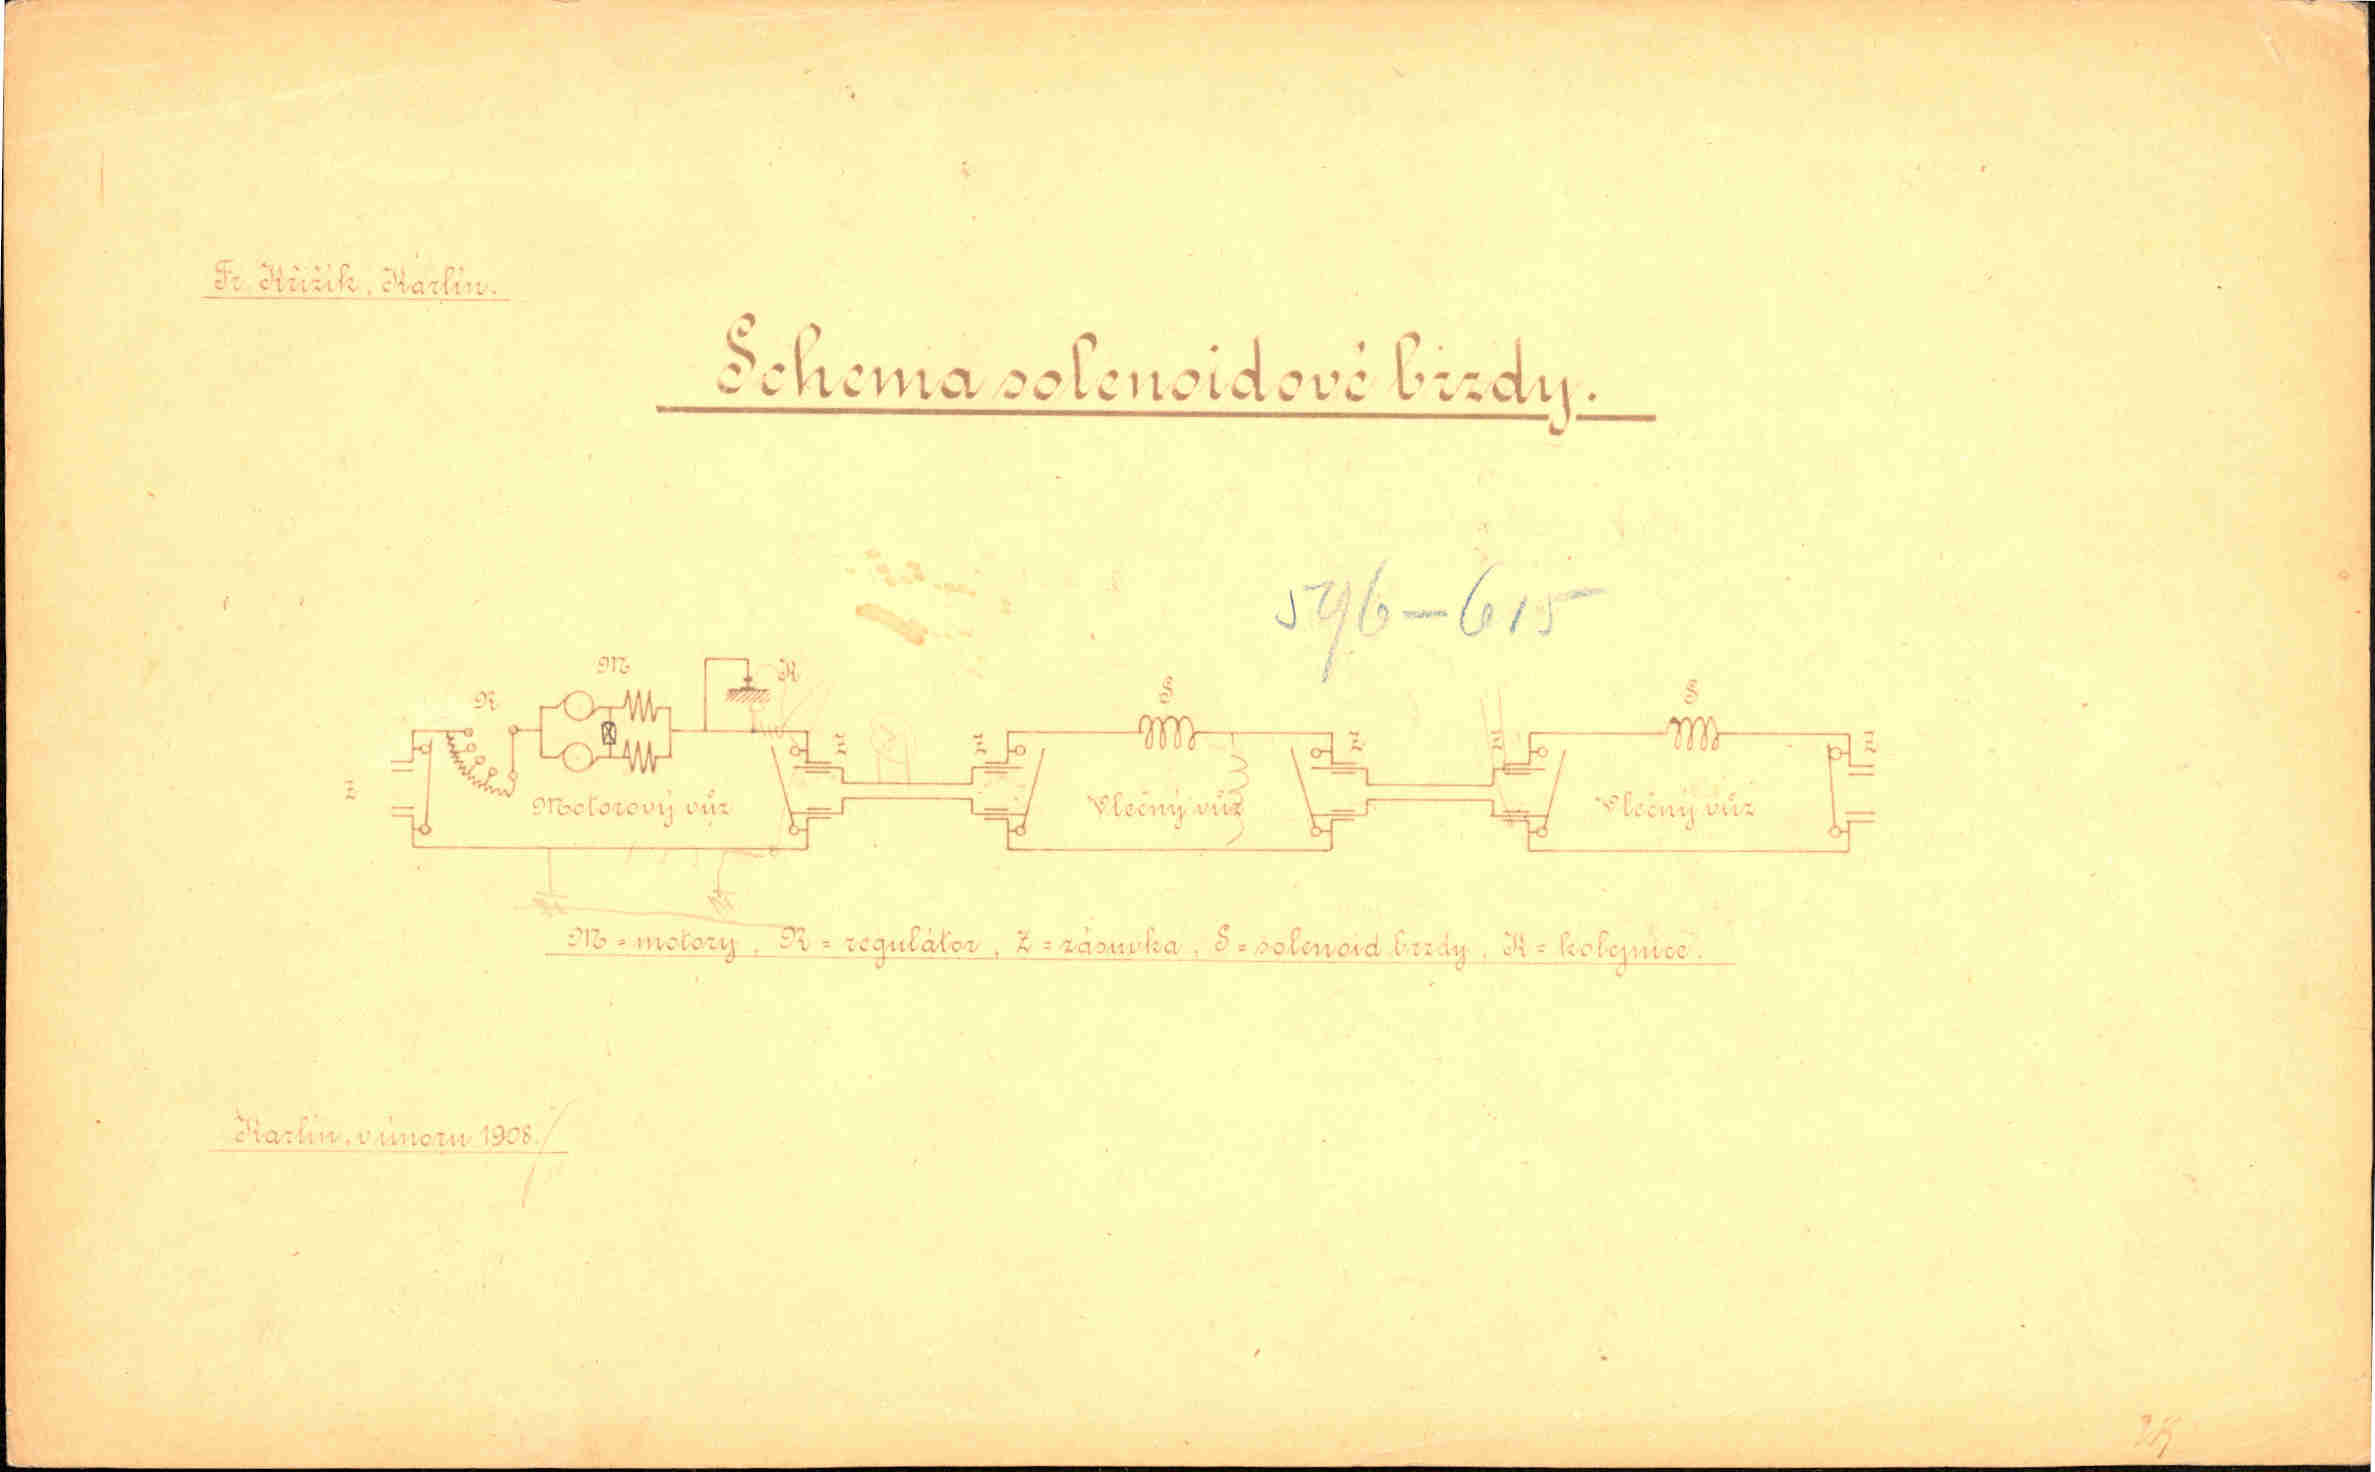 Fr. Křižík, Karlín.
Schema solenoidové brzdy.
596-615
M
R
K
S
S
Z
Z
Z
Z
Z
Z
Motorový vůz
Vlečný vůz
Vlečný vůz
M = motory, R = regulátor, Z = zásuvka, S = solenoid brzdy, K = kolejnice.
Karlín, v únoru 1908.